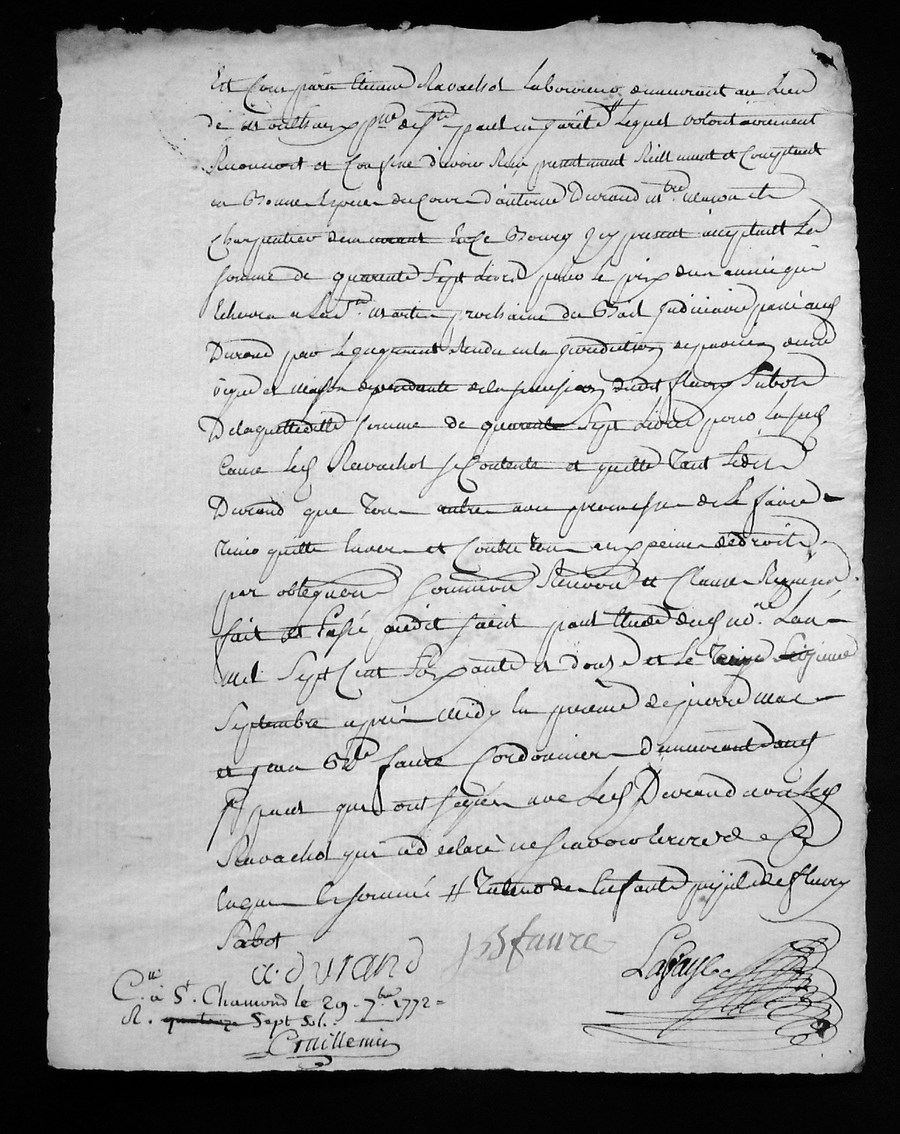 Est Comparu Etienne Ravachol Laboureur demeurant au Lieu
de psse de St paul en Jarêts # Lequel volontairement
Reconnoit et Confesse d'avoir Reçu presentement Réellement et Comptant
en Bonne Espece du Cours d'antoine Durand mtre masson et
Charpentier demeurant En Ce Bourg Icy present acceptant La
somme de quarente Sept Livres pour le prix d'une année qui
Echerra a La St martin prochaine du Bail Judiciaire passé aud
Durand par Le Jugement Rendu en la Jurisdiction d'une
vigne et maison dependante de la succession dudit fleury Sabot
De laquelle ditte somme de quarente Sept Livres pour La susd
Cause Led Ravachol se Contente et quitte Tant Ledit
Durand que Tous autres avec promesse de Le faire
Tenir quitte Envers et Contre Tous aux peines de droit
par obligeons Soumissions Renvon et Clauses
fait et Passé audit Saint paul Etude dud nore Lan
mil Sept Cent Soixante et douse et Le Seizieme
Septembre après midy En presence de pierre
et jean Bte faure Cordonnier demeurant aud
St paul qui ont signés avec Led Durand non Led
Ravachol qui a declaré ne scavoir Ecrire de Ce
Enquis et sommé # Tuteur de Enfants pupils de fleury
Sabot
a. durand JB faure
Clé à St. Chamond le 29. 7bre 1772
R. quatorze Sept Sol.